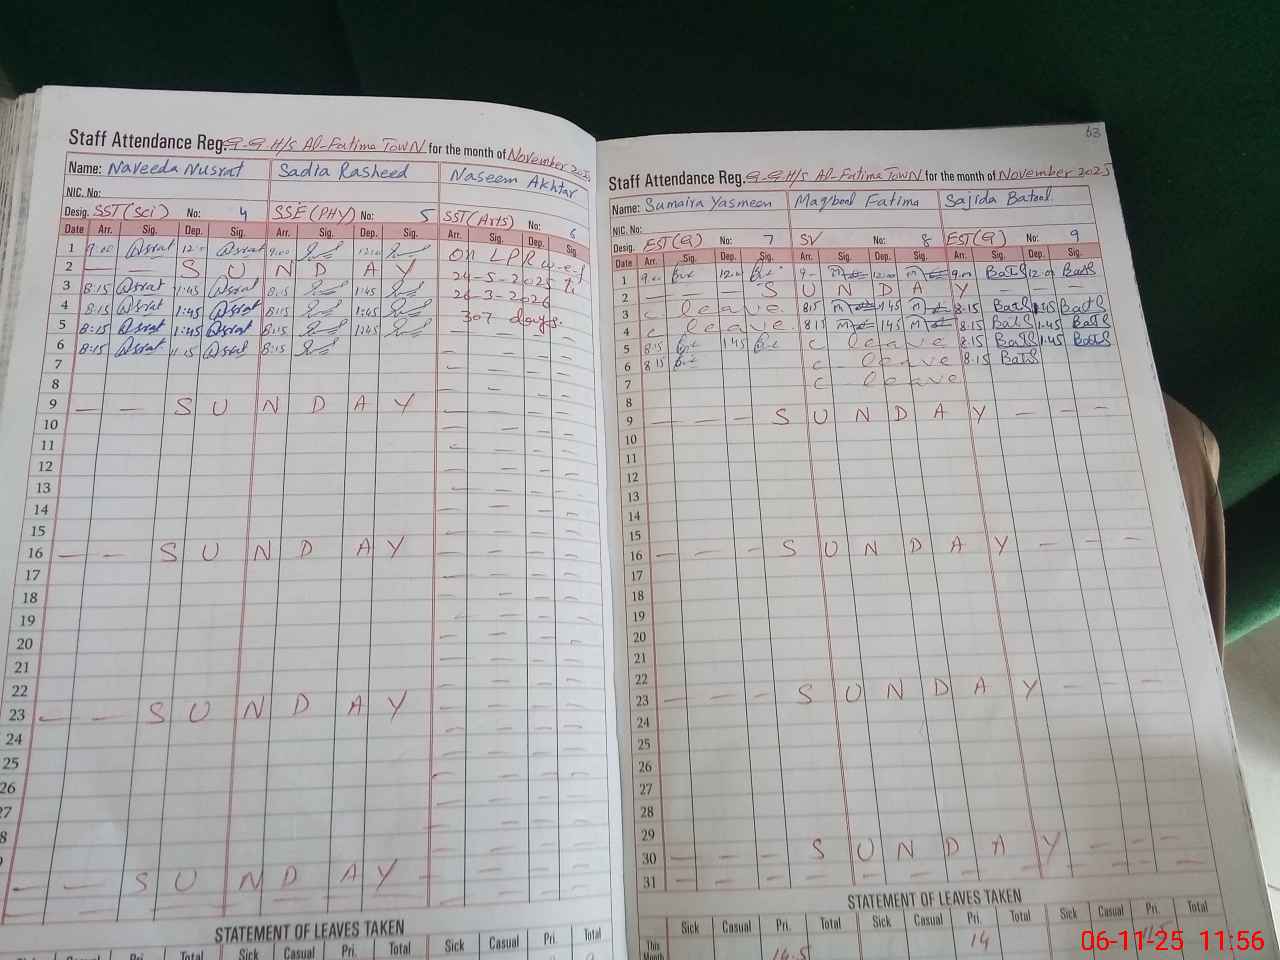 Staff Attendance Reg. G.G.H/S Al-Fatima TowN for the month of November 2025
Name: Naveeda Nusrat Sadia Rasheed Naseem Akhtar
NIC. No:
Desig. SST(Sci) No: 4 SSE(PHY) No: 5 SST(Arts) No: 6
Date Arr. Sig. Dep. Sig. Arr. Sig. Dep. Sig. Arr. Sig. Dep. Sig
1 9:00 Qsrat 12:00 Qsrat 9:00 12:00 On LPR w.e.f
2 — — S U N D A Y 24-5-2025
3 8:15 Qsrat 1:45 Qsrat 8:15 1:45 26-3-2026
4 8:15 Qsrat 1:45 Qsrat 8:15 1:45 307 days.
5 8:15 Qsrat 1:45 Qsrat 8:15 1:45
6 8:15 Qsrat 1:15 Qsrat 8:15
7
8
9 — — S U N D A Y
10
11
12
13
14
15
16 — — S U N D A Y
17
18
19
20
21
22
23 — — S U N D A Y
24
25
26
27
8
— — S U N D A Y
STATEMENT OF LEAVES TAKEN
Sick Casual Pri. Total Sick Casual Pri. Total Sick Casual Pri. Total
63
Staff Attendance Reg. G.G.H/S Al-Fatima TowN for the month of November 2025
Name: Sumaira Yasmeen Maqbool Fatima Sajida Batool
NIC. No:
Desig. EST(G) No: 7 SV No: 8 EST(G) No: 9
Date Arr. Sig. Dep. Sig. Arr. Sig. Dep. Sig. Arr. Sig. Dep. Sig.
1 9:00 12:00 9- 12:00 9:00 12:00
2 — — — S U N D A Y — — —
3 c leave 8:15 1:45 8:15 1:45
4 c leave 8:15 1:45 8:15 1:45
5 8:15 1:45 c leave 8:15 1:45
6 8:15 c leave 8:15
7 c leave
8
9 — — — S U N D A Y — — —
10
11
12
13
14
15
16 — — — S U N D A Y — — —
17
18
19
20
21
22
23 — — — S U N D A Y — —
24
25
26
27
28
29
30 — — — S U N D A Y — — —
31 — — — — — — — — — — —
STATEMENT OF LEAVES TAKEN
Sick Casual Pri. Total Sick Casual Pri. Total Sick Casual Pri. Total
This Month 14.5 14
06-11-25 11:56